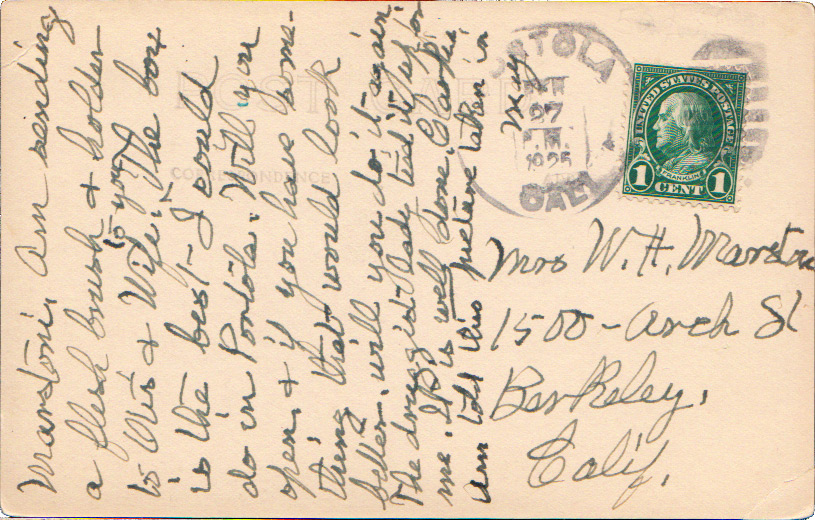 Marston, Am sending
a flesh brush & holder
to you
to Otis & Wife. The box
is the best I could
do in Portola. Will you
open, & if you have some-
thing that would look
better, will you do it again.
The druggist Lady tied it up for
me. It is well done.
Am told this picture taken in
May
PORTOLA
27
P.M.
1925
CAL.
UNITED STATES POSTAGE
FRANKLIN
1 CENT 1
POST CARD
CORRESPONDENCE
Mrs W. H. Marston
1500 - Arch St
Berkeley,
Calif.